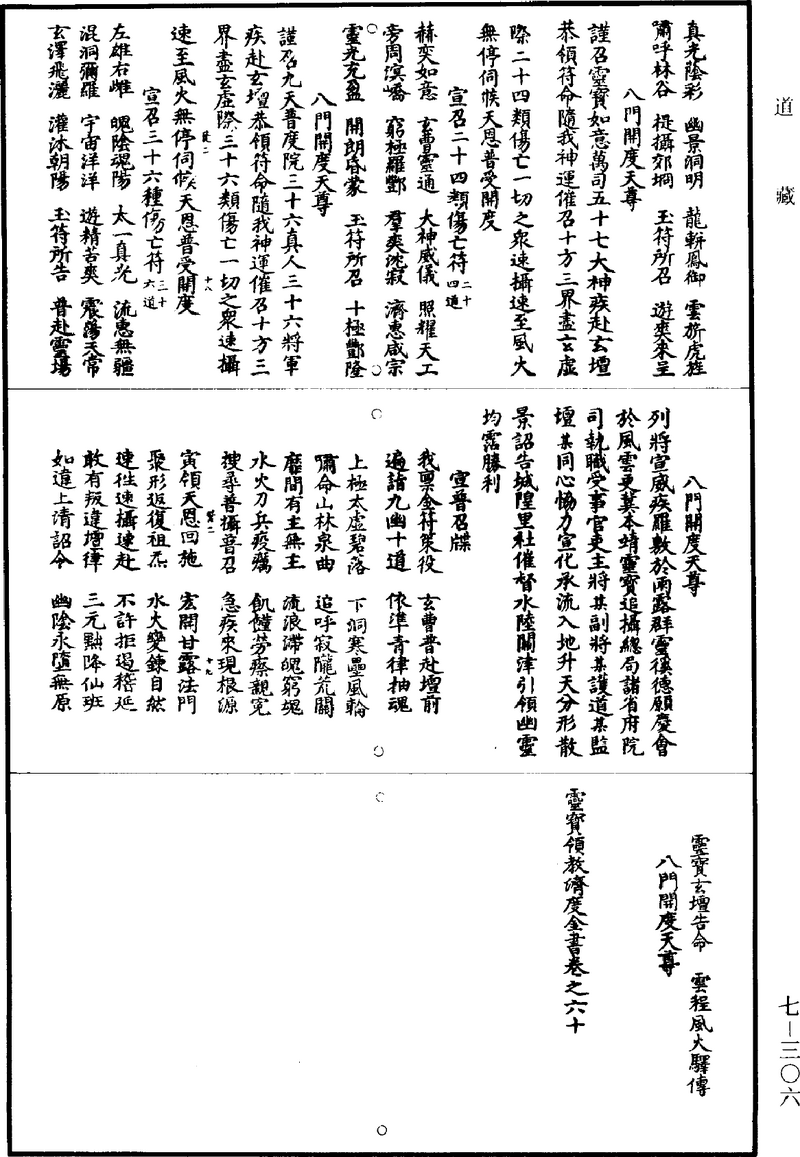 道藏
七—三〇六
真光陰彩　幽景洞明　龍輧鳳御　雲旂虎旌
嘯呼林谷　提攝郊坰　玉符所召　遊爽來呈
八門開度天尊
謹召靈寶如意萬司五十七大神疾赴玄壇
恭領符命隨我神運催召十方三界盡玄虛
際二十四類傷亡一切之衆速攝速至風火
無停伺候天恩普受開度
宣召二十四類傷亡符二十四道
赫奕如意　玄曹靈通　大神威儀　照耀天工
旁周溟嶓　窮極羅酆　羣爽沈寂　濟惠咸宗
靈光充盈　開朗昏蒙　玉符所召　十極酆隆
八門開度天尊
謹召九天普度院三十六真人三十六將軍
疾赴玄壇恭領符命隨我神運催召十方三
界盡玄虛際三十六類傷亡一切之衆速攝
速至風火無停伺候天恩普受開度
宣召三十六種傷亡符三十六道
左雄右雌　魄陰魂陽　太一真光　流惠無疆
混洞彌羅　宇宙洋洋　遊精苦爽　震蕩天常
玄澤飛灑　灌沐朝陽　玉符所告　普赴靈場
八門開度天尊
列將宣威疾羅敷於雨露群靈徯德願慶會
於風雲更冀本靖靈寶追攝總局諸省府院
司執職受事官吏主將某副將某護道某監
壇某同心協力宣化承流入地升天分形散
景詔告城隍里社催督水陸關津引領幽靈
均霑勝利
宣普召牒
我禀金符策役　玄曹普赴壇前
遍詣九幽十道　依準青律抽魂
上極太虛碧落　下洞寒壘風輪
嘯命山林泉曲　追呼寂隴荒闉
靡間有主無主　流浪滯魄窮魂
水火刀兵疫癘　飢饉勞瘵親冤
搜尋普攝普召　急疾來現根源
寅領天恩回施　宏開甘露法門
聚形返復祖炁　水火變鍊自然
速往速攝速赴　不許拒遏稽延
敢有叛違壇律　三元黜降仙班
如違上清詔令　幽陰永墮無原
靈寶玄壇告命　雲程風火驛傳
八門開度天尊
靈寶領教濟度金書卷之六十